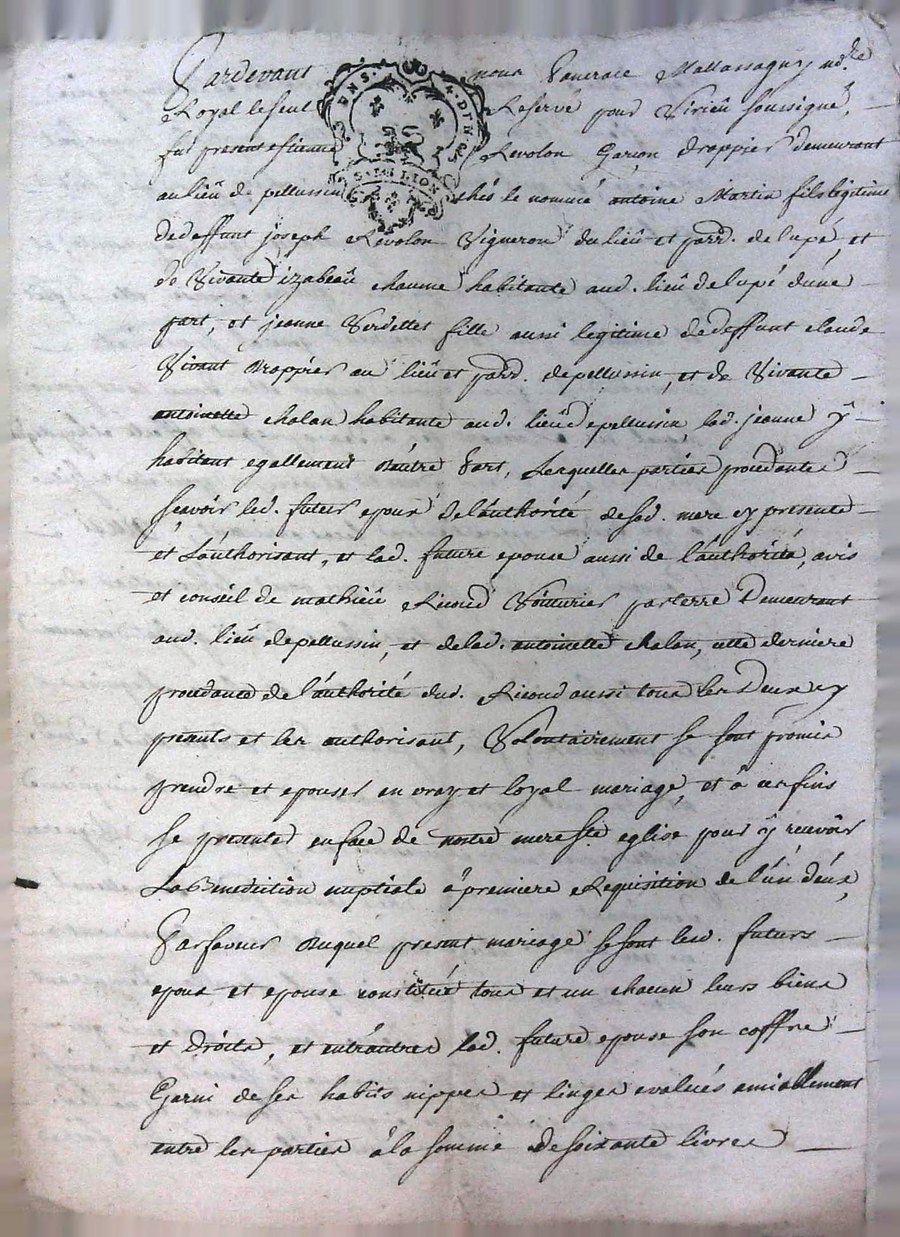 Pardevant nous Mallassagny no.re
Royal le seul Reservé pour Virieû soussigné,
fut present estienne Revolon Garçon drappier demeurant
au lieû de pellussin chés le nommé antoine Martin fils légitime
de deffunt joseph Revolon Vigneron du lieû et parr. de lupé et
de Vivante izabeau chaume habitante aud. lieû de lupé d'une
part, et jeanne Verdellet fille aussi legitime de deffunt claude
Vivant drappier au lieû et parr. de pellussin, et de Vivante
antoinette chalan habitante aud. lieû de pellussin, lad. jeanne y
habitant egallement d'autre part, Lesquelles parties procedantes
scavoir led. futur epoux de l'authorité de sad. mere cy presente
et l'authorisant, et lad. future epouse aussi de l'authorité, avis
et conseil de mathieû Ricoud Voiturier par terre Demeurant
aud. lieû de pellussin, et de lad. antoinette chalan, cette derniere
procedante de l'authorité dud. Ricoud aussi tous les Deux cy
presents et les authorisant, Volontairement se sont promis
prendre et epouser en vray et loyal mariage, et à ces fins
se presenter en face de nostre mere Ste eglise pour y recevoir
La Benediction nuptiale à premiere Requisition de l'un d'eux,
En faveur duquel present mariage se sont lesd. futurs
epoux et epouse constitué tous et un chacun leurs biens
et Droits, et entr'autres lad. future epouse son coffre
Garni de ses habits nippes et linges evalués amiablement
entre les parties à la somme de soixante livres
S. DE LION